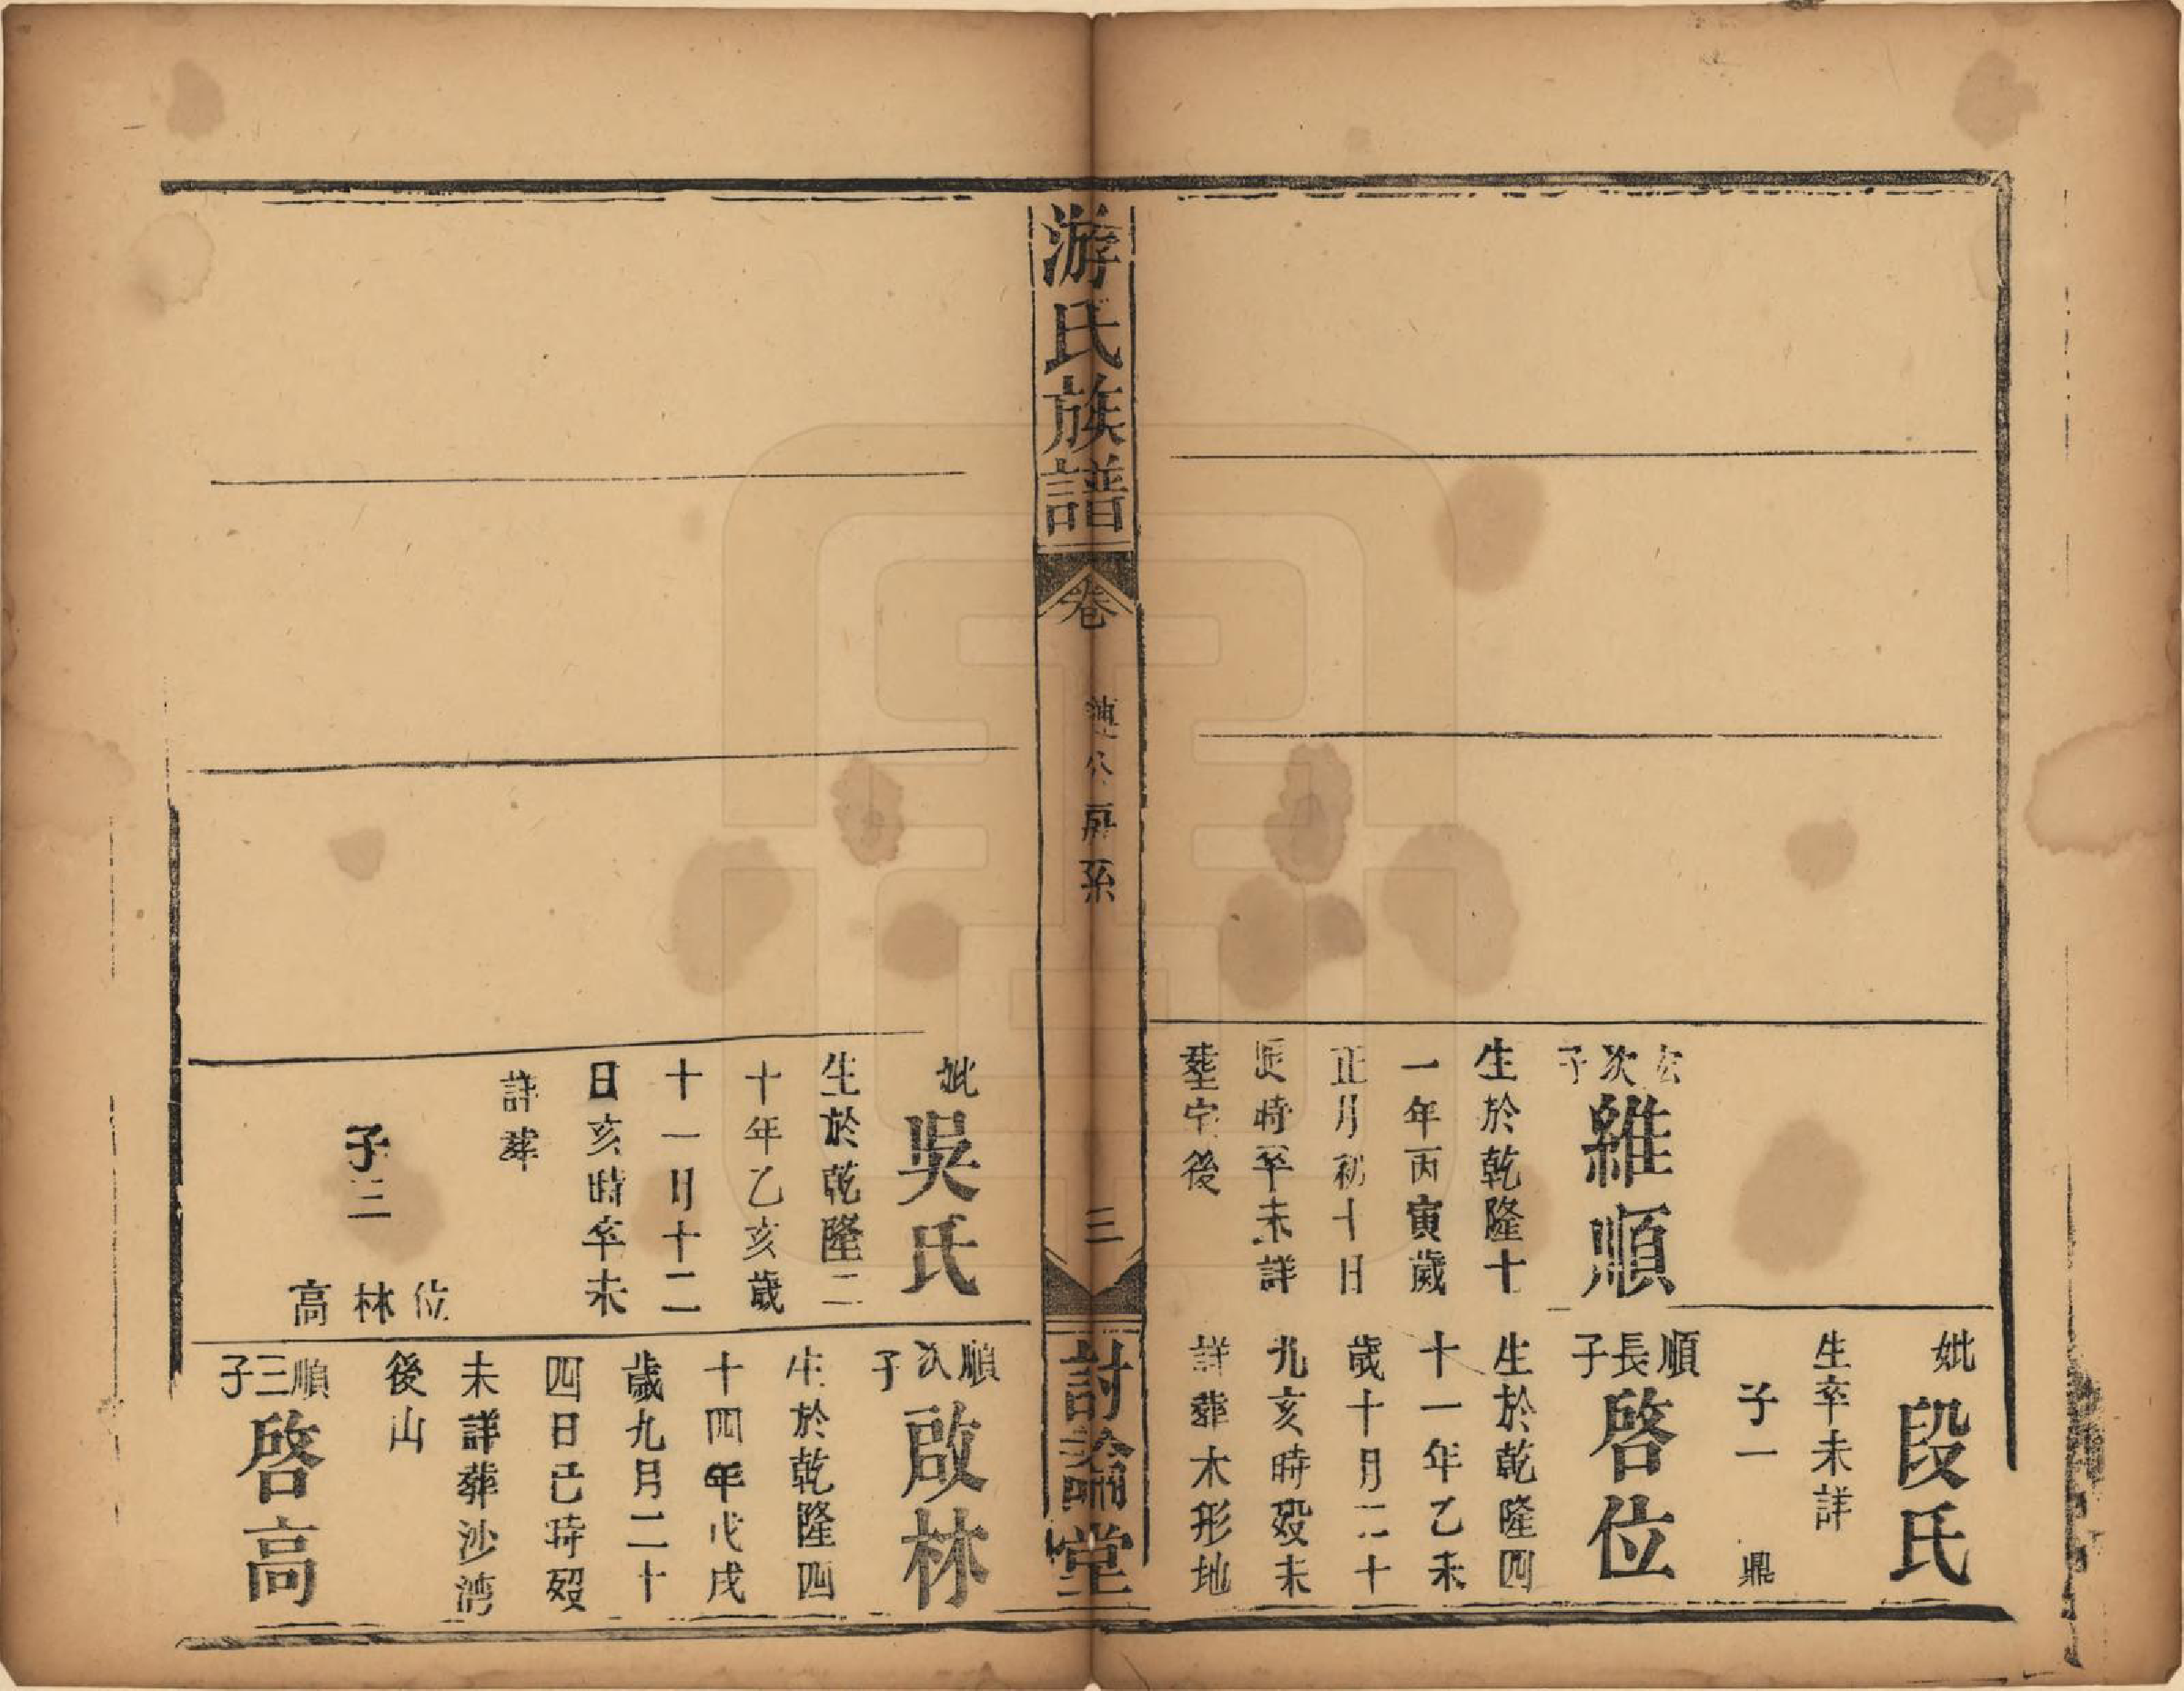 宏次子
維順
生於乾隆十
一年丙寅歲
正月初十日
辰時卒未詳
塟宅後
妣段氏
生卒未詳
子一
鼎
順長子
啓位
生於乾隆四
十一年乙未
歲十月二十
九亥時殁未
詳葬木形地
游氏族譜
卷
公房系
三
討論堂
妣吳氏
生於乾隆二
十年乙亥歲
十一月十二
日亥時卒未
詳葬
子三
位
林
高
順次子
啟林
生於乾隆四
十四年戊戌
歲九月二十
四日巳時殁
未詳葬沙灣
後山
順三子
啓高